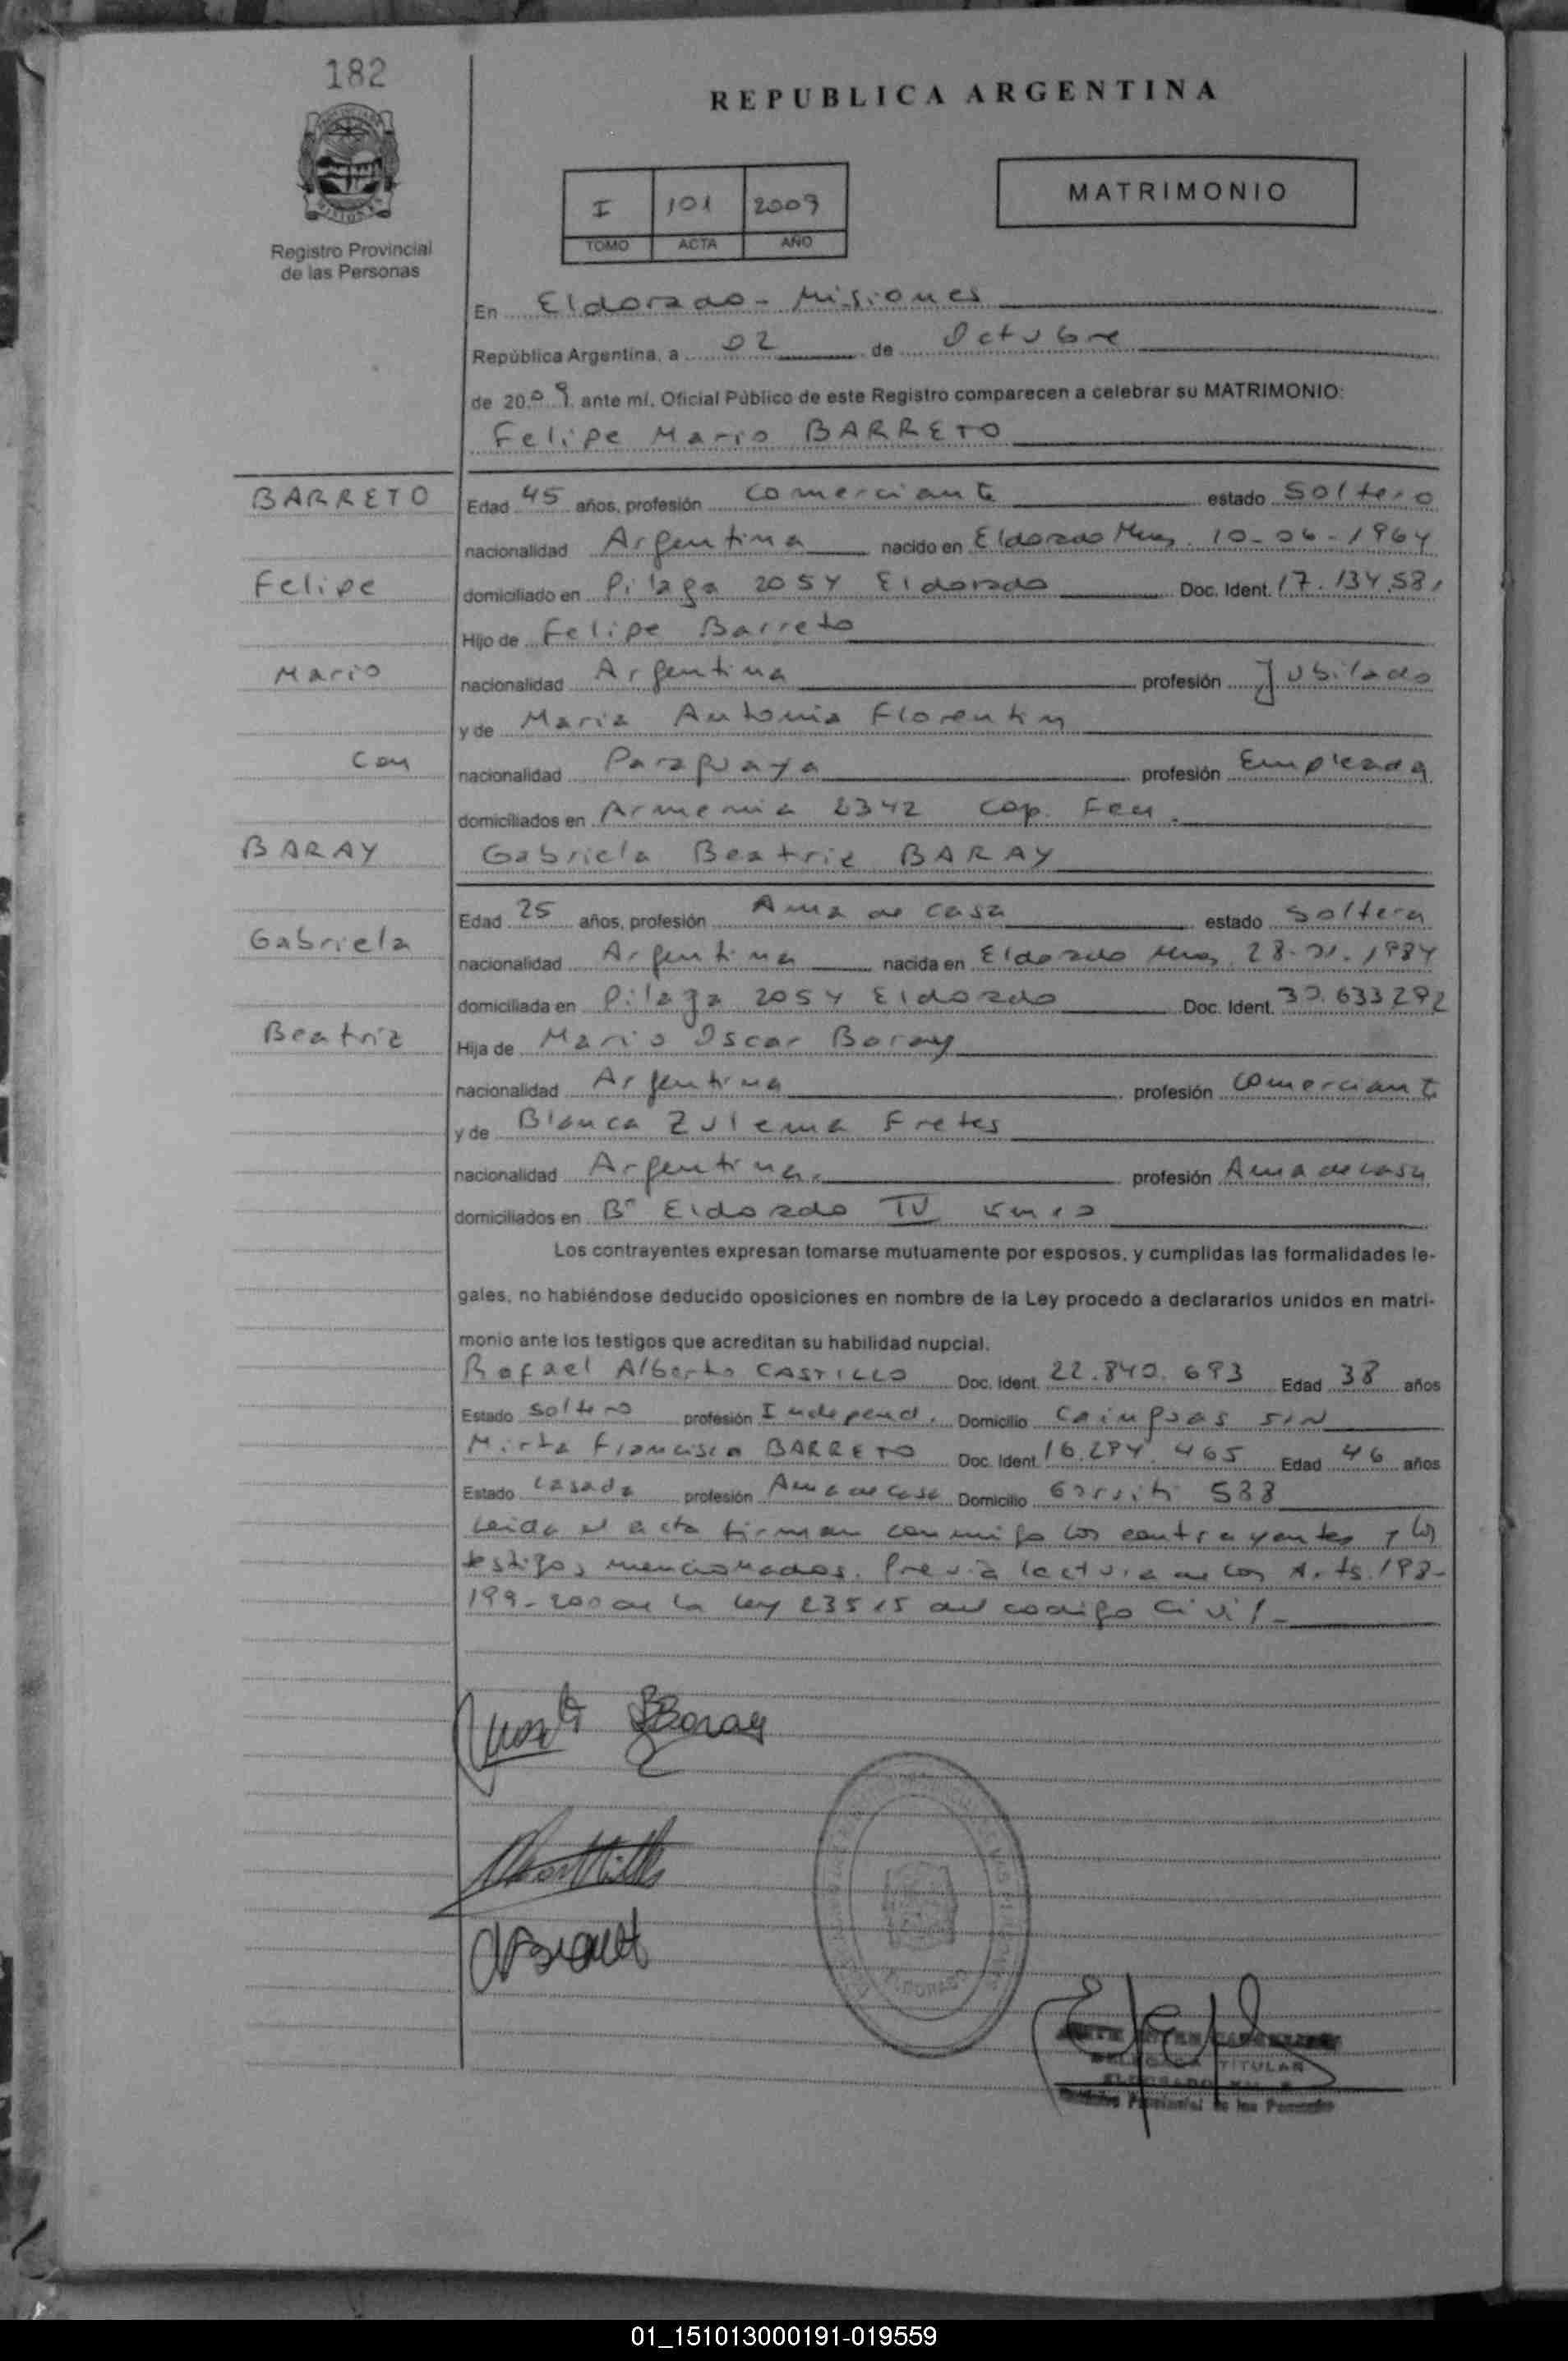 182
REPUBLICA ARGENTINA
I 101 2009
TOMO ACTA AÑO
MATRIMONIO
Registro Provincial
de las Personas
En Eldorado - Misiones
República Argentina, a 02 de Octubre
de 2009 ante mí, Oficial Público de este Registro comparecen a celebrar su MATRIMONIO:
Felipe Mario BARRETO
BARRETO
Edad 45 años, profesión comerciante estado soltero
nacionalidad Argentina nacido en Eldorado Mnes 10-06-1964
Felipe
domiciliado en Pilaga 2054 Eldorado Doc. Ident. 17.134.581
Hijo de Felipe Barreto
Mario
nacionalidad Argentina profesión Jubilado
y de Maria Antonia Florentin
Con
nacionalidad Paraguaya profesión Empleada
domiciliados en Armenia 2342 Cap. Fed.
BARAY
Gabriela Beatriz BARAY
Edad 25 años, profesión Ama de casa estado soltera
Gabriela
nacionalidad Argentina nacida en Eldorado Mnes 28-01-1984
domiciliada en Pilaga 2054 Eldorado Doc. Ident. 30.633292
Beatriz
Hija de Mario Oscar Baray
nacionalidad Argentina profesión comerciante
y de Blanca Zulema Fretes
nacionalidad Argentina profesión Ama de casa
domiciliados en B° Eldorado IV km 10
Los contrayentes expresan tomarse mutuamente por esposos, y cumplidas las formalidades le-
gales, no habiéndose deducido oposiciones en nombre de la Ley procedo a declararlos unidos en matri-
monio ante los testigos que acreditan su habilidad nupcial.
Rafael Alberto CASTILLO Doc. Ident. 22.840.693 Edad 38 años
Estado soltero profesión Independ. Domicilio Caingoas S/N
Mirta Francisca BARRETO Doc. Ident. 16.294.465 Edad 46 años
Estado casada profesión Ama de casa Domicilio Gorriti 588
Leida el acta firman conmigo los contrayentes y los
testigos mencionados. Previa lectura de los Arts. 198-
199-200 de la Ley 23515 del codigo Civil-
Baray
ELDORADO
DELEGADA TITULAR
Registro Provincial de las Personas
01_151013000191-019559